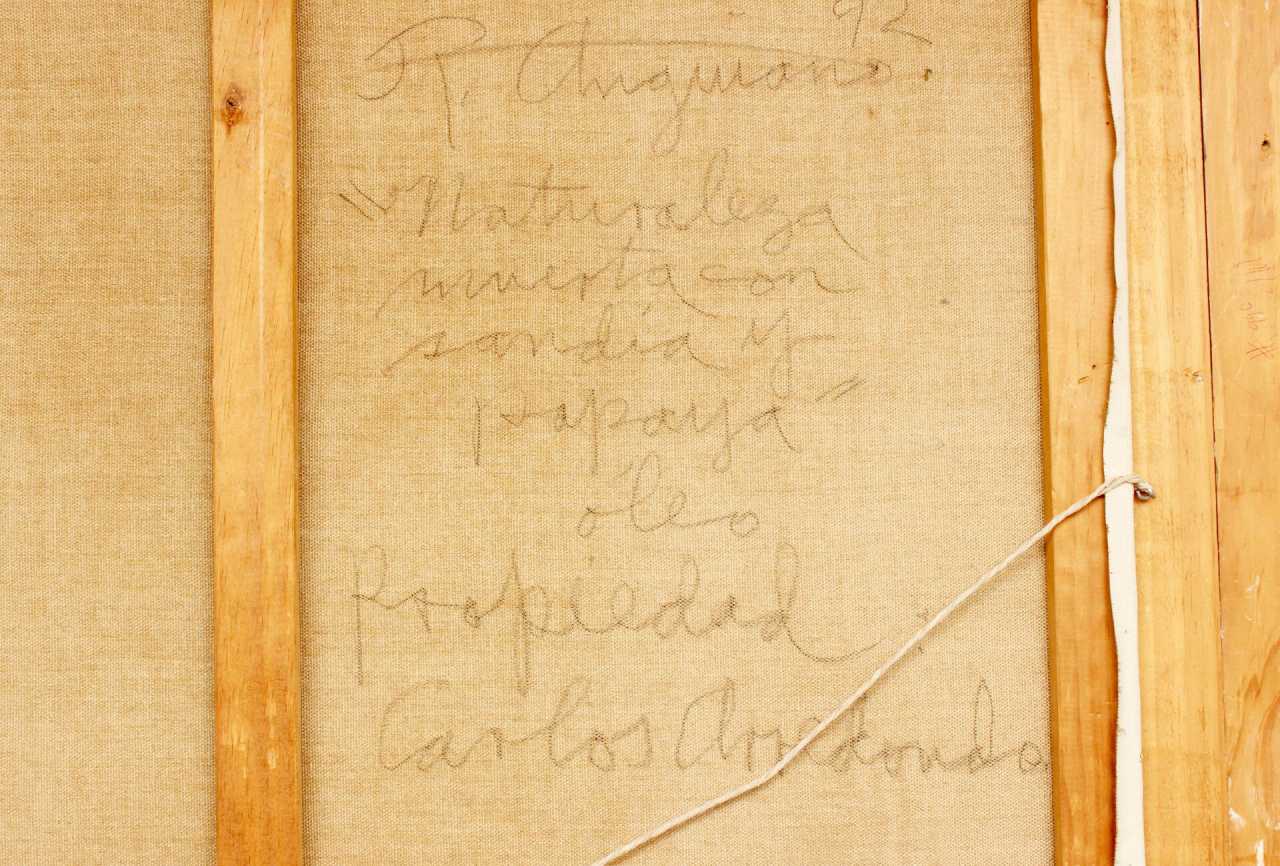 92
R. Chiguano.
"Naturaleza
muerta con
sandía y
papaya"
óleo
Propiedad
Carlos Arredondo